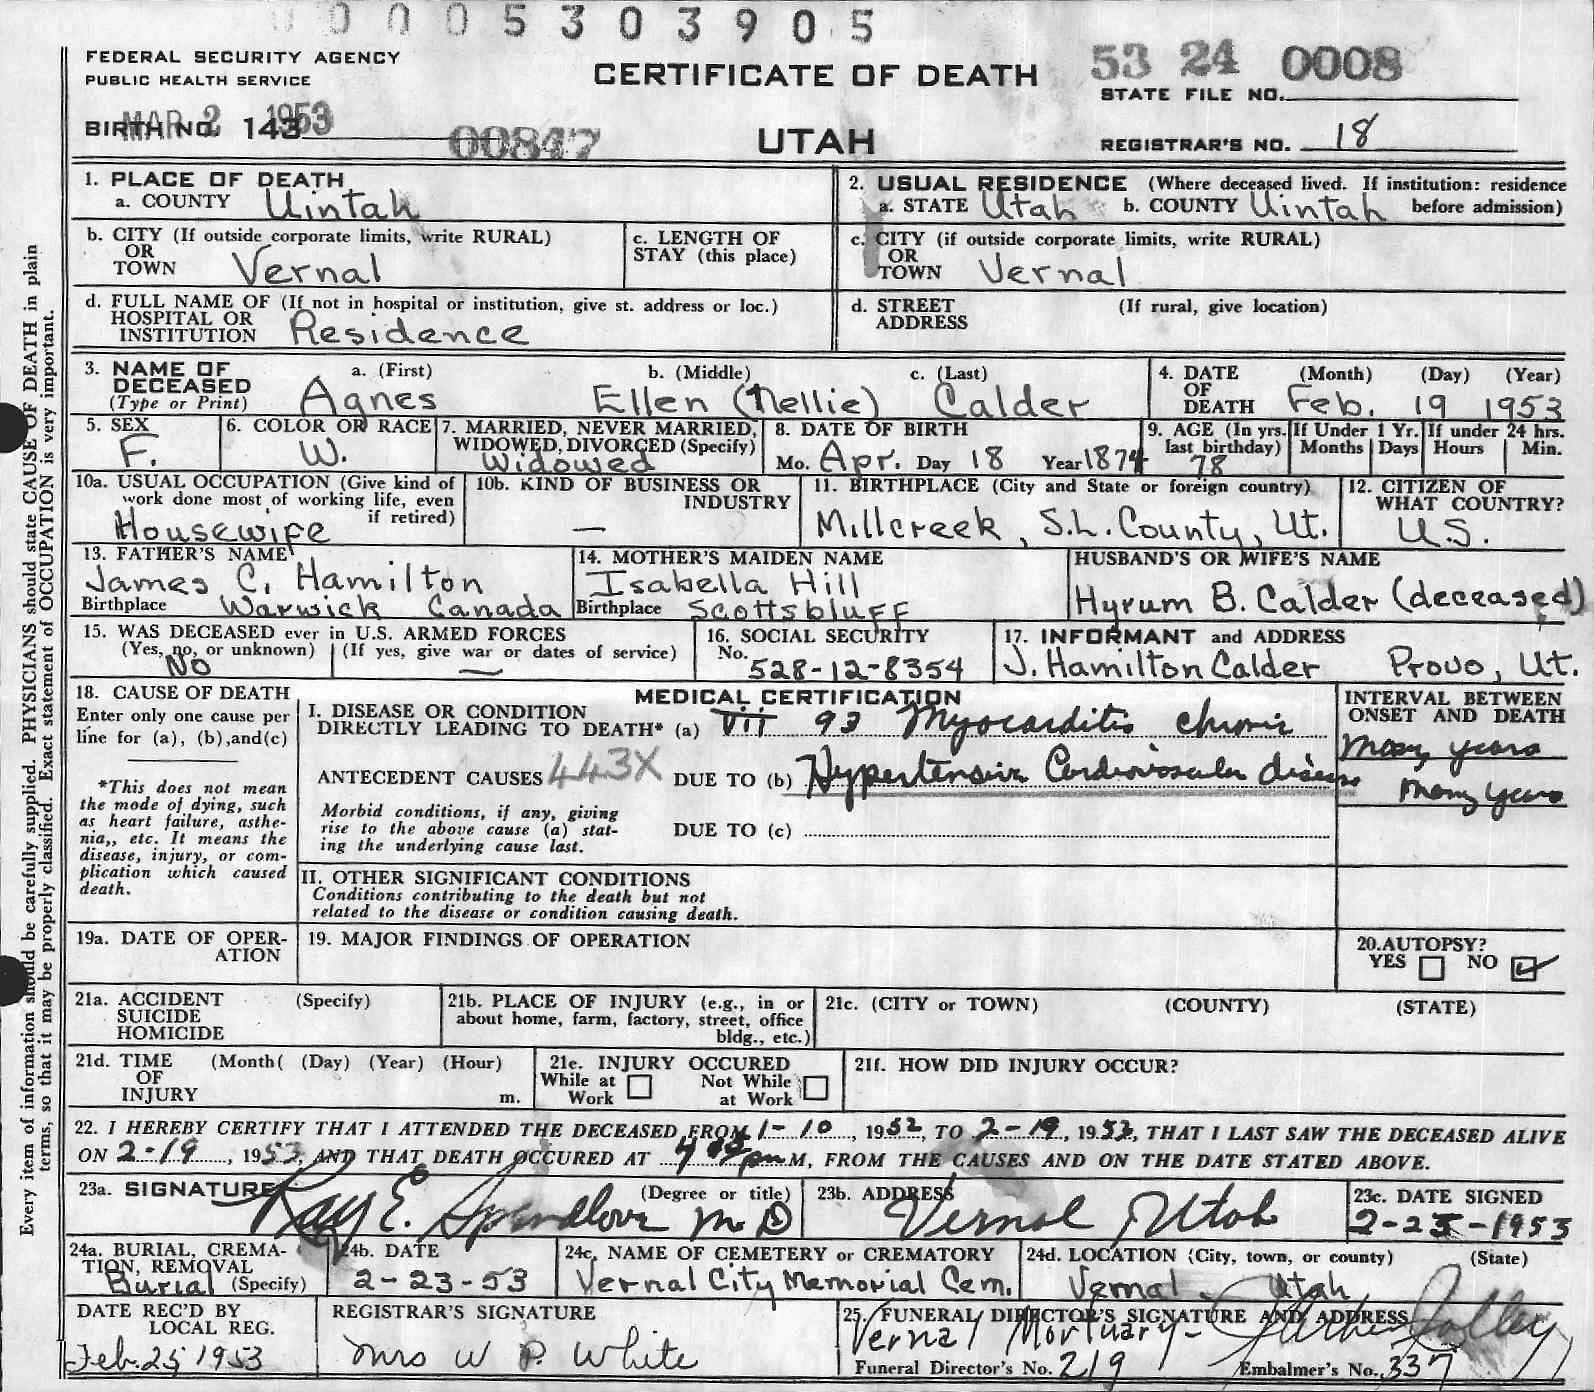 0 0 0 5 3 0 3 9 0 5
FEDERAL SECURITY AGENCY
PUBLIC HEALTH SERVICE
CERTIFICATE OF DEATH
53 24 0008
STATE FILE NO.
MAR 2 1953
BIRTH NO. 143
00847
UTAH
REGISTRAR'S NO. 18
1. PLACE OF DEATH
a. COUNTY Uintah
2. USUAL RESIDENCE (Where deceased lived. If institution: residence
a. STATE Utah b. COUNTY Uintah before admission)
b. CITY (If outside corporate limits, write RURAL)
OR
TOWN Vernal
c. LENGTH OF
STAY (this place)
c. CITY (if outside corporate limits, write RURAL)
OR
TOWN Vernal
d. FULL NAME OF (If not in hospital or institution, give st. address or loc.)
HOSPITAL OR
INSTITUTION Residence
d. STREET (If rural, give location)
ADDRESS
3. NAME OF DECEASED
(Type or Print)
a. (First) b. (Middle) c. (Last)
Agnes Ellen (Nellie) Calder
4. DATE OF DEATH (Month) (Day) (Year)
Feb. 19 1953
5. SEX
F.
6. COLOR OR RACE
W.
7. MARRIED, NEVER MARRIED,
WIDOWED, DIVORCED (Specify)
Widowed
8. DATE OF BIRTH
Mo. Apr. Day 18 Year 1874
9. AGE (In yrs. last birthday)
78
If Under 1 Yr.
Months Days
If under 24 hrs.
Hours Min.
10a. USUAL OCCUPATION (Give kind of
work done most of working life, even
if retired)
Housewife
10b. KIND OF BUSINESS OR
INDUSTRY
—
11. BIRTHPLACE (City and State or foreign country)
Millcreek, S.L. County, Ut.
12. CITIZEN OF
WHAT COUNTRY?
U.S.
13. FATHER'S NAME
James C. Hamilton
Birthplace Warwick Canada
14. MOTHER'S MAIDEN NAME
Isabella Hill
Birthplace Scottsbluff
HUSBAND'S OR WIFE'S NAME
Hyrum B. Calder (deceased)
15. WAS DECEASED ever in U.S. ARMED FORCES
(Yes, no, or unknown) (If yes, give war or dates of service)
No —
16. SOCIAL SECURITY
No. 528-12-8354
17. INFORMANT and ADDRESS
J. Hamilton Calder Provo, Ut.
18. CAUSE OF DEATH
Enter only one cause per
line for (a), (b), and (c)
*This does not mean
the mode of dying, such
as heart failure, asthe-
nia,, etc. It means the
disease, injury, or com-
plication which caused
death.
MEDICAL CERTIFICATION
I. DISEASE OR CONDITION
DIRECTLY LEADING TO DEATH* (a) VII 93 Myocarditis chronic
ANTECEDENT CAUSES 443X DUE TO (b) Hypertensive Cardiovascular disease
Morbid conditions, if any, giving
rise to the above cause (a) stat-
ing the underlying cause last.
DUE TO (c)
INTERVAL BETWEEN
ONSET AND DEATH
Many years
Many years
II. OTHER SIGNIFICANT CONDITIONS
Conditions contributing to the death but not
related to the disease or condition causing death.
19a. DATE OF OPER-
ATION
19. MAJOR FINDINGS OF OPERATION
20. AUTOPSY?
YES NO
21a. ACCIDENT (Specify)
SUICIDE
HOMICIDE
21b. PLACE OF INJURY (e.g., in or
about home, farm, factory, street, office
bldg., etc.)
21c. (CITY or TOWN) (COUNTY) (STATE)
21d. TIME (Month( (Day) (Year) (Hour)
OF
INJURY m.
21e. INJURY OCCURED
While at Work
Not While at Work
21f. HOW DID INJURY OCCUR?
22. I HEREBY CERTIFY THAT I ATTENDED THE DECEASED FROM 1-10, 1952, TO 2-19, 1953, THAT I LAST SAW THE DECEASED ALIVE
ON 2-19, 1953, AND THAT DEATH OCCURED AT 4 pm M, FROM THE CAUSES AND ON THE DATE STATED ABOVE.
23a. SIGNATURE (Degree or title)
Ray E. Spendlove M.D
23b. ADDRESS
Vernal Utah
23c. DATE SIGNED
2-23-1953
24a. BURIAL, CREMA-
TION, REMOVAL
Burial (Specify)
24b. DATE
2-23-53
24c. NAME OF CEMETERY or CREMATORY
Vernal City Memorial Cem.
24d. LOCATION (City, town, or county) (State)
Vernal Utah
DATE REC'D BY
LOCAL REG.
Feb. 25, 1953
REGISTRAR'S SIGNATURE
Mrs W P. White
25. FUNERAL DIRECTOR'S SIGNATURE AND ADDRESS
Vernal Mortuary- Jolley
Funeral Director's No. 219 Embalmer's No. 337
Every item of information should be carefully supplied. PHYSICIANS should state CAUSE OF DEATH in plain
terms, so that it may be properly classified. Exact statement of OCCUPATION is very important.